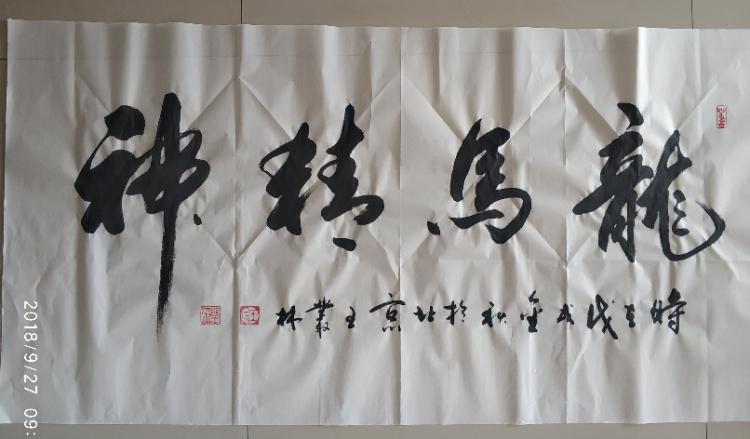 龍馬精神
時在戊戌金秋於北京王叢林
2018/9/27 09: